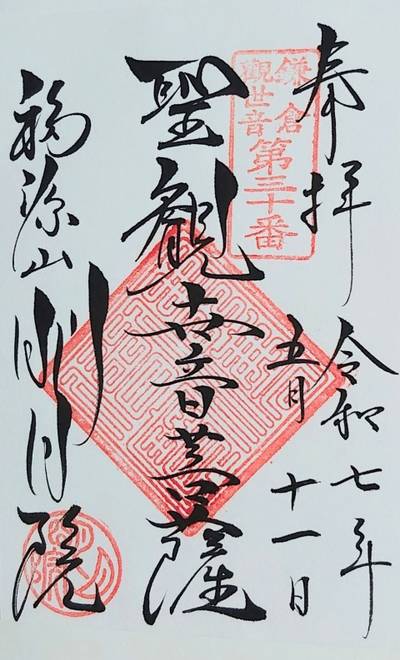 奉拝
令和七年
五月十一日
鎌倉
觀世音
第三十番
聖観世音菩薩
福源山明月院